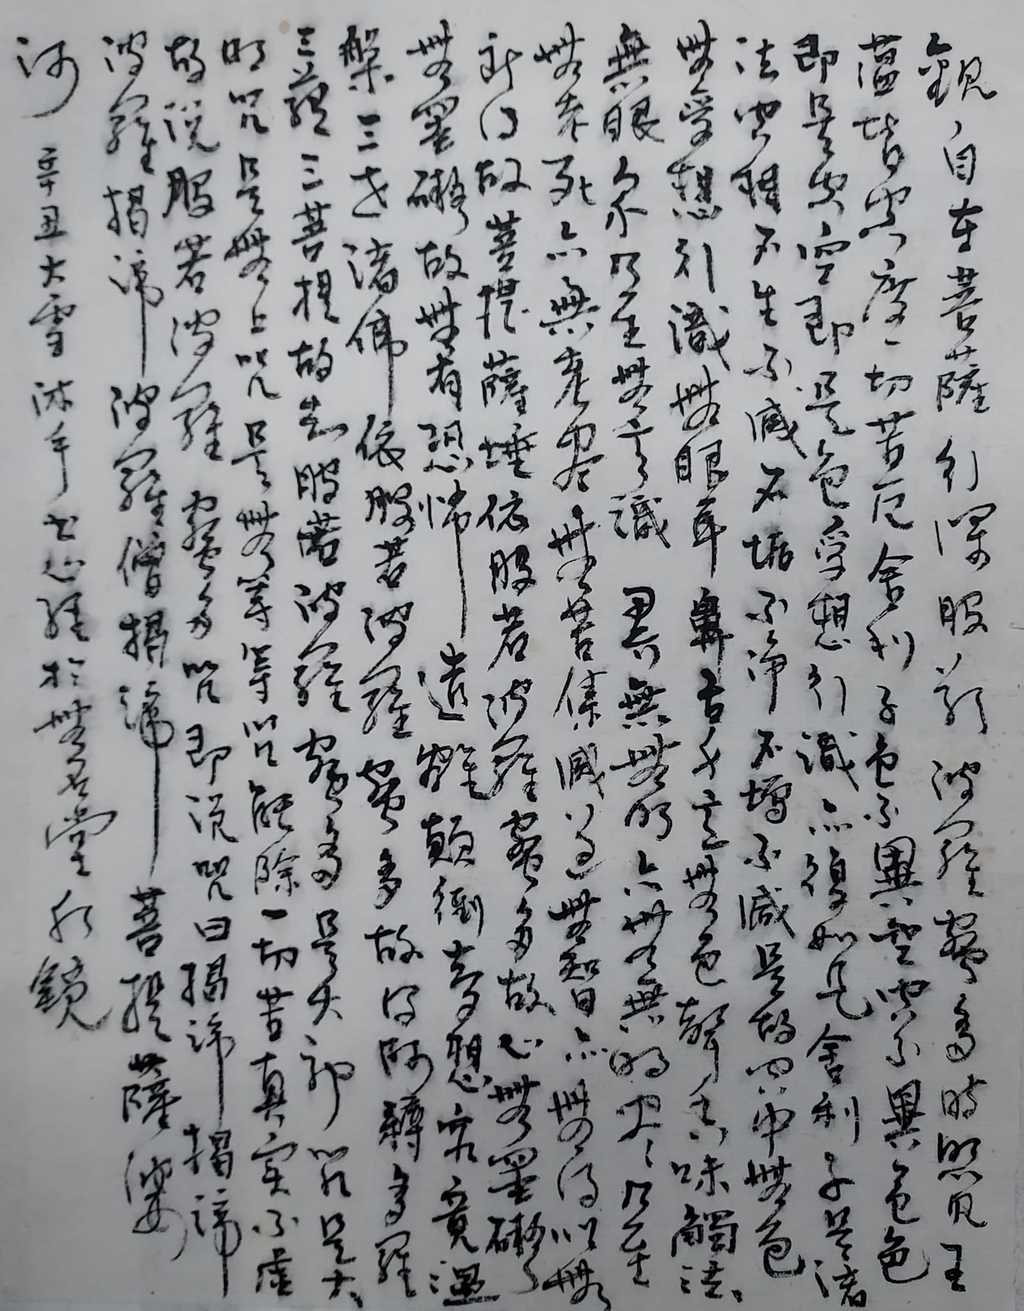 觀自在菩薩行深般若波羅蜜多時照見五
蘊皆空度一切苦厄舍利子色不異空空不異色色
即是空空即是色受想行識亦復如是舍利子是諸
法空相不生不滅不垢不淨不增不減是故空中無色
無受想行識無眼耳鼻舌身意無色聲香味觸法
無眼界乃至無意識界無無明亦無無明盡乃至
無老死亦無老盡無苦集滅道無智亦無得以無
所得故菩提薩埵依般若波羅蜜多故心無罣礙
無罣礙故無有恐怖遠離顛倒夢想究竟涅
槃三世諸佛依般若波羅蜜多故得阿耨多羅
三藐三菩提故知般若波羅蜜多是大神咒是大
明咒是無上咒是無等等咒能除一切苦真實不虛
故說般若波羅蜜多咒即說咒曰揭諦揭諦
波羅揭諦波羅僧揭諦菩提薩婆
訶 辛丑大雪沐手書心經於無名堂 鏡